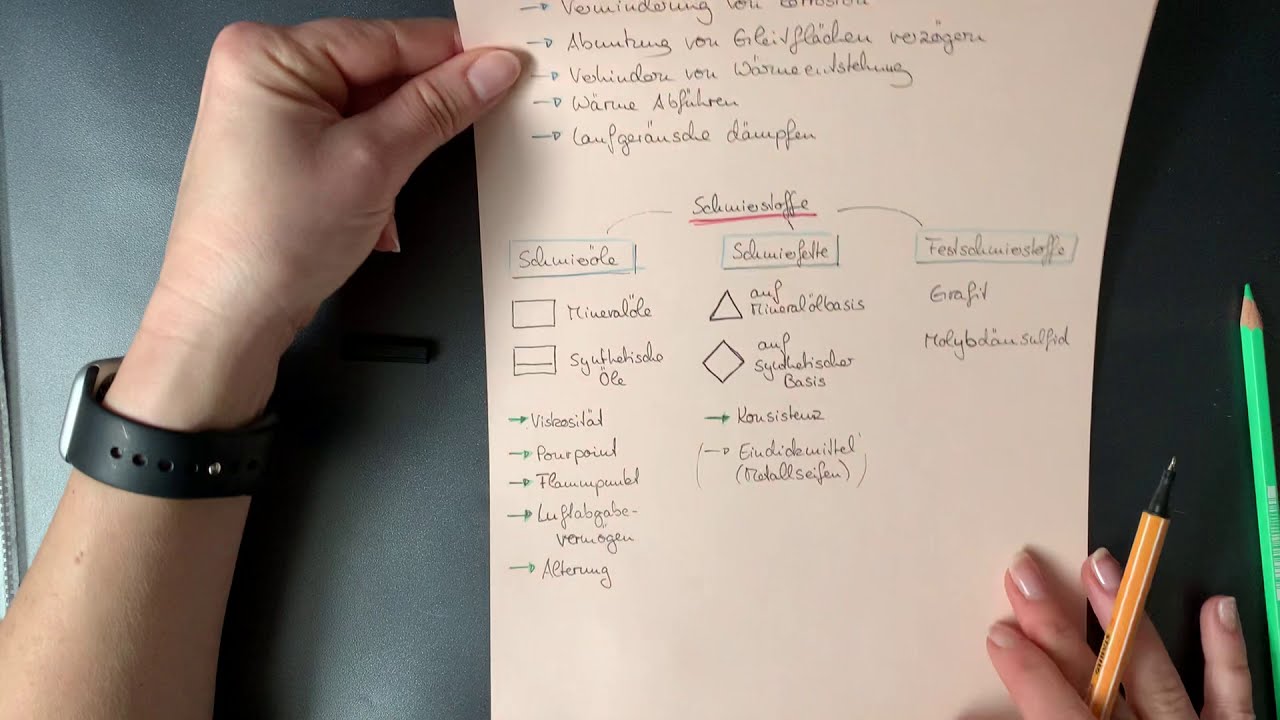 Verminderung von Corrosion
Abnutzung von Gleitflächen verzögern
Verhindern von Wärmeentstehung
Wärme Abführen
Laufgeräusche dämpfen
Schmierstoffe
Schmieröle
Schmierfette
Festschmierstoffe
Mineralöle
auf
Mineralölbasis
Grafit
Synthetische
Öle
auf
Synthetischer
Basis
Molybdänsulfid
Viskosität
Pourpoint
Flammpunkt
Luftabgabe-
vermögen
Alterung
Konsistenz
( Eindickmittel
(Metallseifen) )